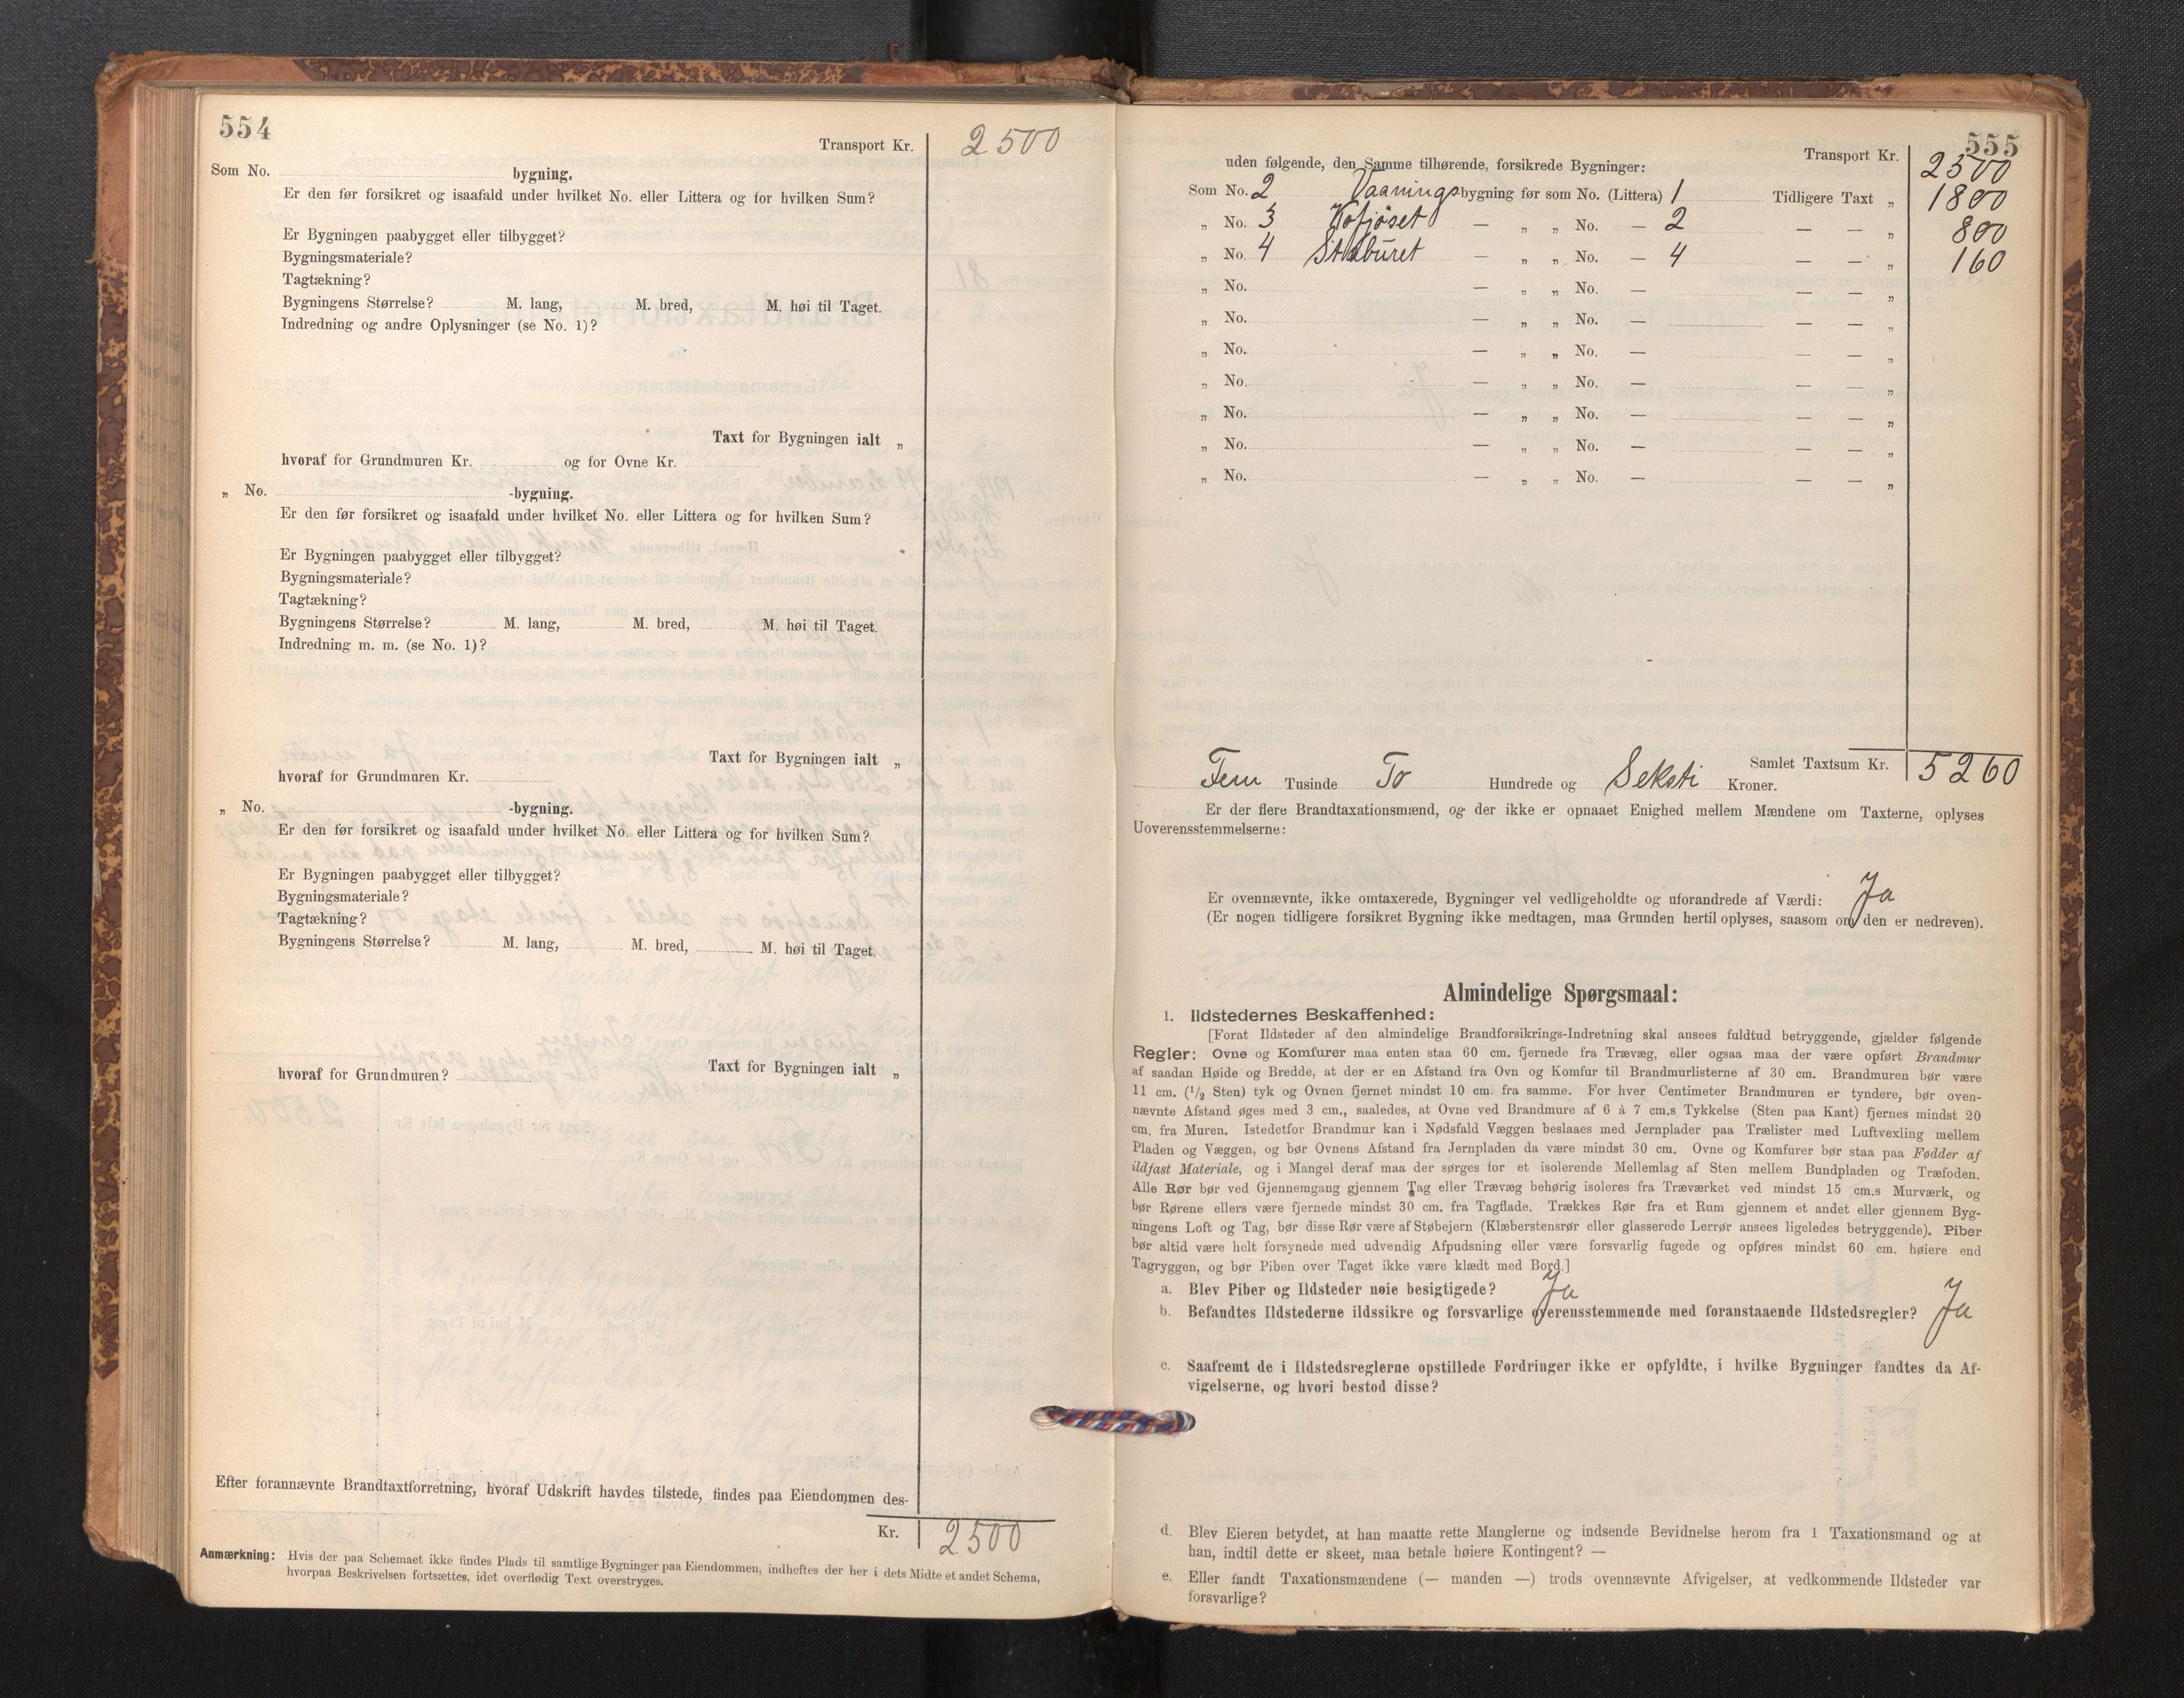 554
Transport Kr. 2500
Som No. bygning.
Er den før forsikret og isaafald under hvilket No. eller Littera og for hvilken Sum?
Er Bygningen paabygget eller tilbygget?
Bygningsmateriale?
Tagtækning?
Bygningens Størrelse? M. lang, M. bred, M. høi til Taget.
Indredning og andre Oplysninger (se No. 1)?
Taxt for Bygningen ialt „
hvoraf for Grundmuren Kr. og for Ovne Kr.
„ No. -bygning.
Er den før forsikret og isaafald under hvilket No. eller Littera og for hvilken Sum?
Er Bygningen paabygget eller tilbygget?
Bygningsmateriale?
Tagtækning?
Bygningens Størrelse? M. lang, M. bred, M. høi til Taget.
Indredning m. m. (se No. 1)?
Taxt for Bygningen ialt „
hvoraf for Grundmuren Kr.
„ No. -bygning.
Er den før forsikret og isaafald under hvilket No. eller Littera og for hvilken Sum?
Er Bygningen paabygget eller tilbygget?
Bygningsmateriale?
Tagtækning?
Bygningens Størrelse? M. lang, M. bred, M. høi til Taget.
Taxt for Bygningen ialt „
hvoraf for Grundmuren?
Efter forannævnte Brandtaxtforretning, hvoraf Udskrift havdes tilstede, findes paa Eiendommen des-
Kr. 2500
Anmærkning: Hvis der paa Schemaet ikke findes Plads til samtlige Bygninger paa Eiendommen, indheftes der her i dets Midte et andet Schema,
hvorpaa Beskrivelsen fortsættes, idet overflødig Text overstryges.
555
Transport Kr. 2500
uden følgende, den Samme tilhørende, forsikrede Bygninger:
Som No. 2 Vaanings bygning før som No. (Littera) 1 Tidligere Taxt „ 1800
„ No. 3 Kofjöset — „ „ No. — 2 — — „ 800
„ No. 4 Stabüret — „ „ No. — 4 — — „ 160
„ No. — „ „ No. — — — „
„ No. — „ „ No. — — — „
„ No. — „ „ No. — — — „
„ No. — „ „ No. — — — „
„ No. — „ „ No. — — — „
„ No. — „ „ No. — — — „
„ No. — „ „ No. — — — „
Samlet Taxtsum Kr. 5260
Fem Tusinde To Hundrede og Seksti Kroner.
Er der flere Brandtaxationsmænd, og der ikke er opnaaet Enighed mellem Mændene om Taxterne, oplyses
Uoverensstemmelserne:
Er ovennævnte, ikke omtaxerede, Bygninger vel vedligeholdte og uforandrede af Værdi: Ja
(Er nogen tidligere forsikret Bygning ikke medtagen, maa Grunden hertil oplyses, saasom om den er nedreven).
Almindelige Spørgsmaal:
1. Ildstedernes Beskaffenhed:
[Forat Ildsteder af den almindelige Brandforsikrings-Indretning skal ansees fuldtud betryggende, gjælder følgende
Regler: Ovne og Komfurer maa enten staa 60 cm. fjernede fra Trævæg, eller ogsaa maa der være opført Brandmur
af saadan Høide og Bredde, at der er en Afstand fra Ovn og Komfur til Brandmurlisterne af 30 cm. Brandmuren bør være
11 cm. (½ Sten) tyk og Ovnen fjernet mindst 10 cm. fra samme. For hver Centimeter Brandmuren er tyndere, bør oven-
nævnte Afstand øges med 3 cm., saaledes, at Ovne ved Brandmure af 6 à 7 cm.s Tykkelse (Sten paa Kant) fjernes mindst 20
cm. fra Muren. Istedetfor Brandmur kan i Nødsfald Væggen beslaaes med Jernplader paa Trælister med Luftvexling mellem
Pladen og Væggen, og bør Ovnens Afstand fra Jernpladen da være mindst 30 cm. Ovne og Komfurer bør staa paa Fødder af
ildfast Materiale, og i Mangel deraf maa der sørges for et isolerende Mellemlag af Sten mellem Bundpladen og Træfoden.
Alle Rør bør ved Gjennemgang gjennem Tag eller Trævæg behørig isoleres fra Træværket ved mindst 15 cm.s Murværk, og
bør Rørene ellers være fjernede mindst 30 cm. fra Tagflade. Trækkes Rør fra et Rum gjennem et andet eller gjennem Byg-
ningens Loft og Tag, bør disse Rør være af Støbejern (Klæberstensrør eller glasserede Lerrør ansees ligeledes betryggende). Piber
bør altid være helt forsynede med udvendig Afpudsning eller være forsvarlig fugede og opføres mindst 60 cm. høiere end
Tagryggen, og bør Piben over Taget ikke være klædt med Bord.]
a. Blev Piber og Ildsteder nøie besigtigede? Ja
b. Befandtes Ildstederne ildssikre og forsvarlige overensstemmende med foranstaaende Ildstedsregler? Ja
c. Saafremt de i Ildstedsreglerne opstillede Fordringer ikke er opfyldte, i hvilke Bygninger fandtes da Af-
vigelserne, og hvori bestod disse?
d. Blev Eieren betydet, at han maatte rette Manglerne og indsende Bevidnelse herom fra 1 Taxationsmand og at
han, indtil dette er skeet, maa betale høiere Kontingent? —
e. Eller fandt Taxationsmændene (— manden —) trods ovennævnte Afvigelser, at vedkommende Ildsteder var
forsvarlige?